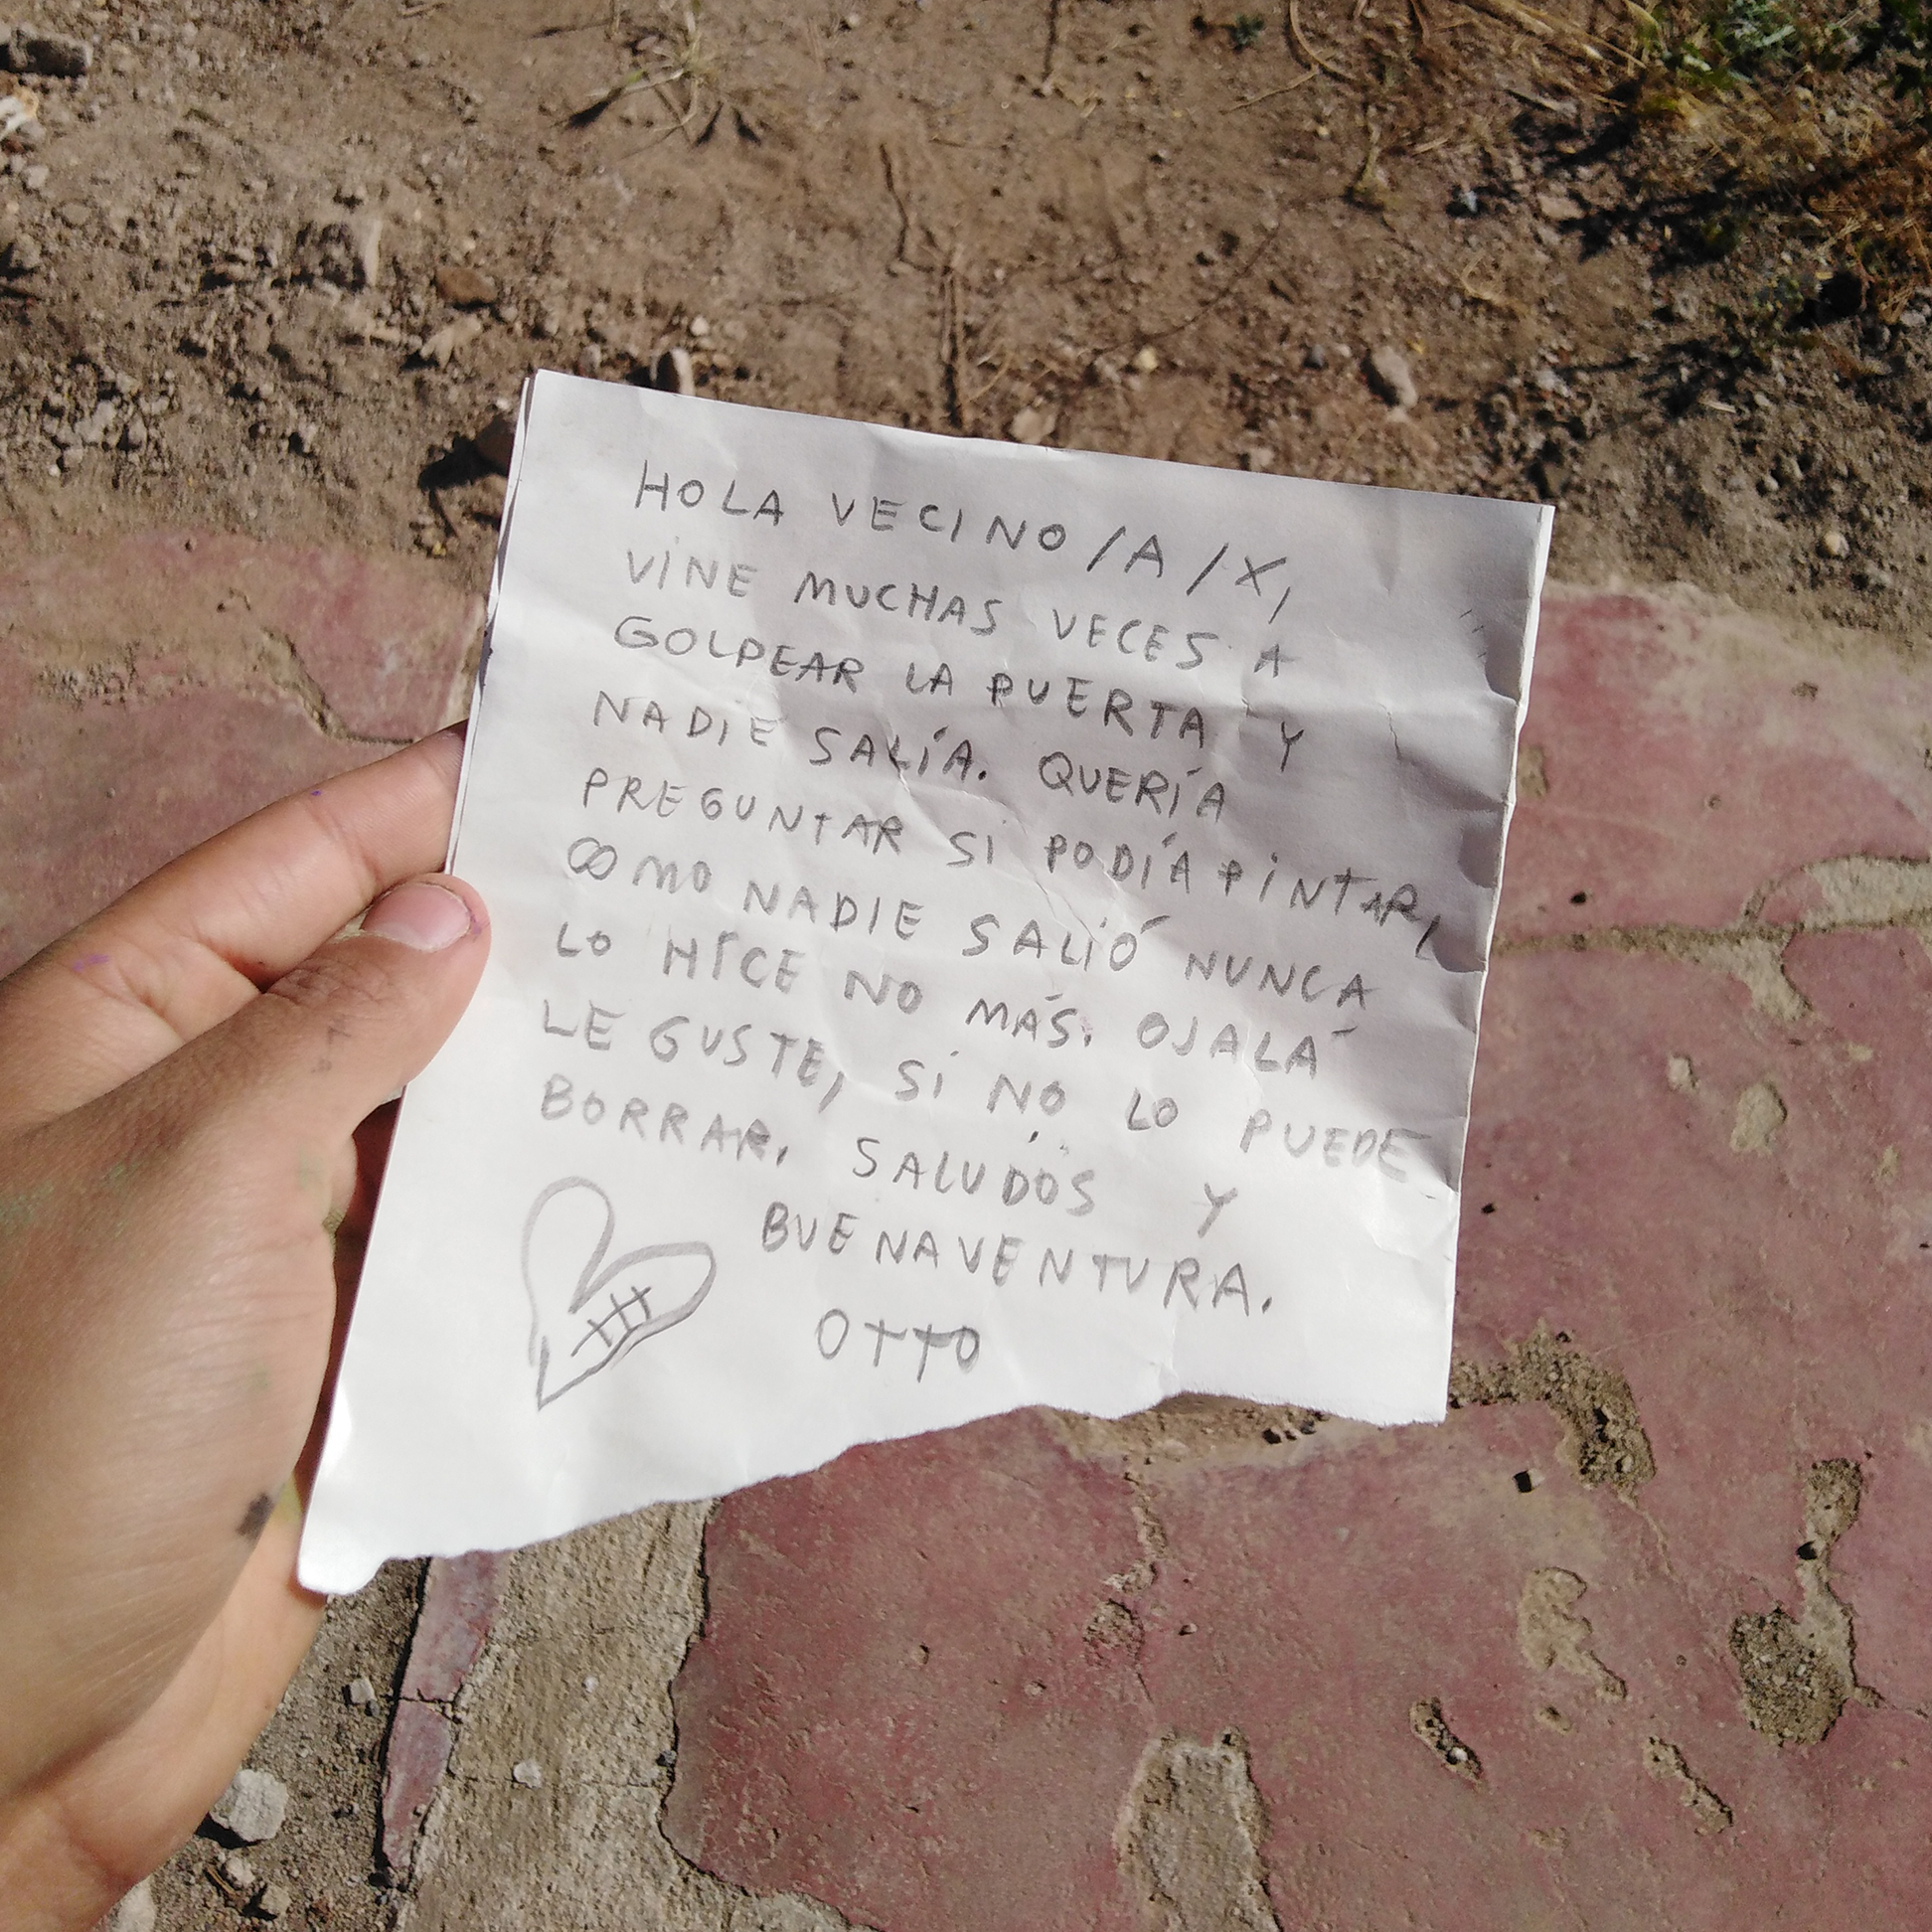 HOLA VECINO/A/X,
VINE MUCHAS VECES A
GOLPEAR LA PUERTA Y
NADIE SALÍA. QUERÍA
PREGUNTAR SI PODÍA PINTAR,
COMO NADIE SALIÓ NUNCA
LO HICE NO MÁS. OJALÁ
LE GUSTE, SI NO LO PUEDE
BORRAR. SALUDOS Y
BUENAVENTURA.
OTTO